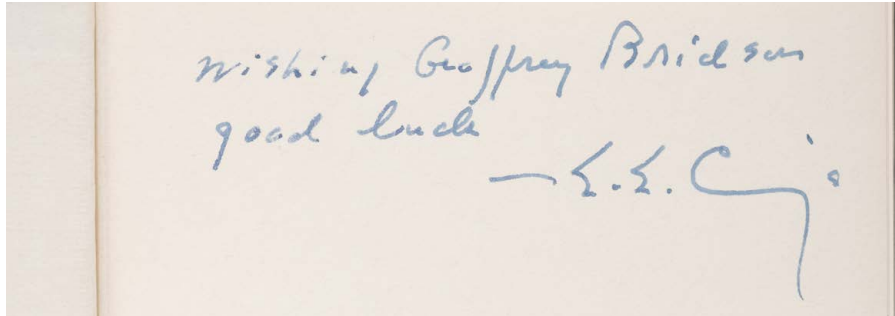 wishing Geoffrey Bridson
good luck
— E.E. Cummings